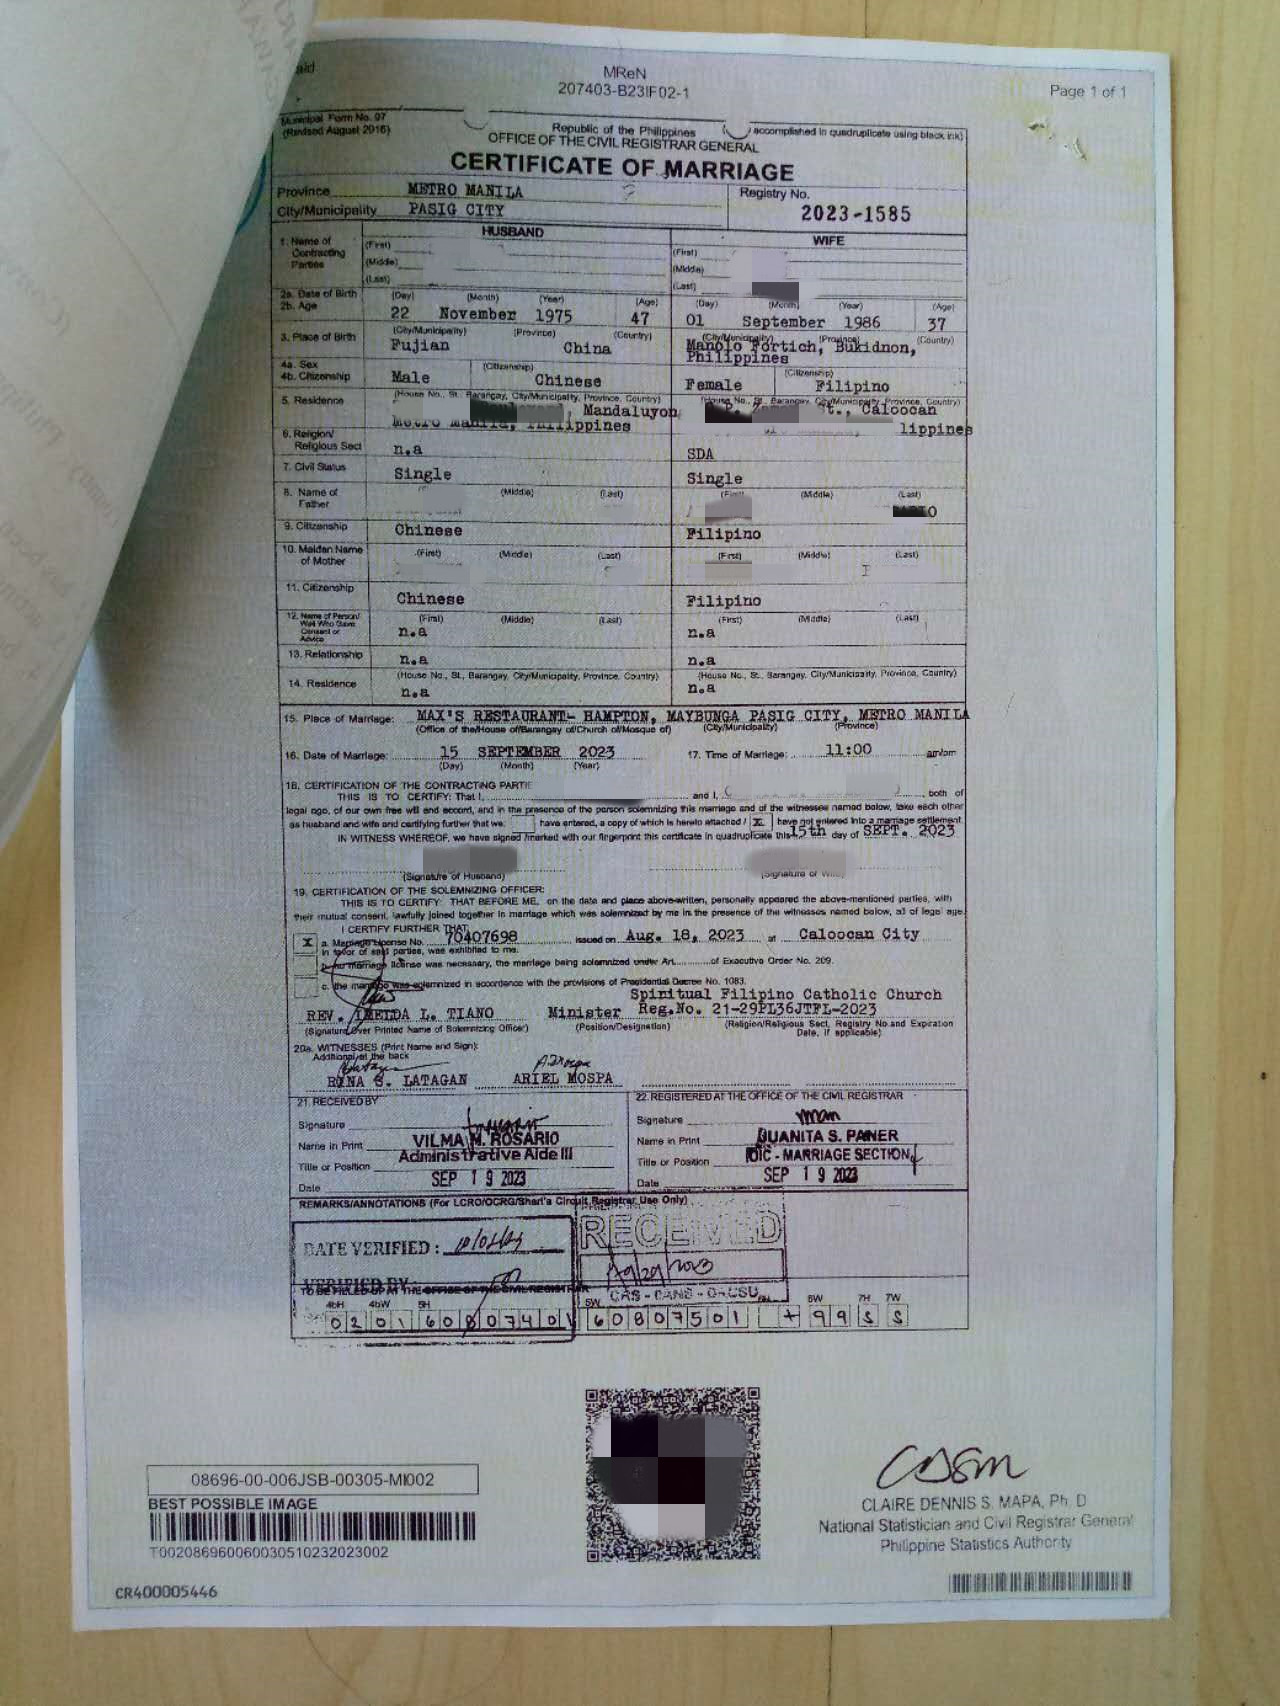 MReN
207403-B23IF02-1
Page 1 of 1
Municipal Form No. 97
(Revised August 2016)
Republic of the Philippines
accomplished in quadruplicate using black ink)
OFFICE OF THE CIVIL REGISTRAR GENERAL
CERTIFICATE OF MARRIAGE
Province METRO MANILA
Registry No.
City/Municipality PASIG CITY
2023-1585
HUSBAND WIFE
1. Name of Contracting Parties
(First) (First)
(Middle) (Middle)
(Last) (Last)
2a. Date of Birth
2b. Age
(Day) (Month) (Year) (Age) (Day) (Month) (Year) (Age)
22 November 1975 47 01 September 1986 37
3. Place of Birth
(City/Municipality) (Province) (Country) (City/Municipality) (Province) (Country)
Fujian China Manolo Fortich, Bukidnon,
Philippines
4a. Sex
4b. Citizenship
(Citizenship) (Citizenship)
Male Chinese Female Filipino
5. Residence
(House No., St., Barangay, City/Municipality, Province, Country) (House No., St., Barangay, City/Municipality, Province, Country)
, Mandaluyon t., Caloocan
Metro Manila, Philippines lippines
6. Religion/
Religious Sect
n.a SDA
7. Civil Status Single Single
8. Name of Father
(Middle) (Last) (First) (Middle) (Last)
9. Citizenship Chinese Filipino
10. Maiden Name of Mother
(First) (Middle) (Last) (First) (Middle) (Last)
11. Citizenship Chinese Filipino
12. Name of Person/ Wali Who Gave Consent or Advice
(First) (Middle) (Last) (First) (Middle) (Last)
n.a n.a
13. Relationship n.a n.a
14. Residence
(House No., St., Barangay, City/Municipality, Province, Country) (House No., St., Barangay, City/Municipality, Province, Country)
n.a n.a
15. Place of Marriage: MAX'S RESTAURANT- HAMPTON, MAYBUNGA PASIG CITY, METRO MANILA
(Office of the/House of/Barangay of/Church of/Mosque of) (City/Municipality) (Province)
16. Date of Marriage: 15 SEPTEMBER 2023 17. Time of Marriage: 11:00 am/pm
(Day) (Month) (Year)
18. CERTIFICATION OF THE CONTRACTING PARTIE
THIS IS TO CERTIFY: That I, and I, both of
legal age, of our own free will and accord, and in the presence of the person solemnizing this marriage and of the witnesses named below, take each other
as husband and wife and certifying further that we: have entered, a copy of which is hereto attached / x have not entered into a marriage settlement.
IN WITNESS WHEREOF, we have signed /marked with our fingerprint this certificate in quadruplicate this 15th day of SEPT. 2023
(Signature of Husband) (Signature of Wife)
19. CERTIFICATION OF THE SOLEMNIZING OFFICER:
THIS IS TO CERTIFY: THAT BEFORE ME, on the date and place above-written, personally appeared the above-mentioned parties, with
their mutual consent, lawfully joined together in marriage which was solemnized by me in the presence of the witnesses named below, all of legal age.
I CERTIFY FURTHER THAT:
x a. Marriage License No. 70407698 issued on Aug. 18, 2023 at Caloocan City
in favor of said parties, was exhibited to me.
b. no marriage license was necessary, the marriage being solemnized under Art. of Executive Order No. 209.
c. the marriage was solemnized in accordance with the provisions of Presidential Decree No. 1083.
Spiritual Filipino Catholic Church
REV. IMELDA L. TIANO Minister Reg.No. 21-29PL36JTFL-2023
(Signature Over Printed Name of Solemnizing Officer) (Position/Designation) (Religion/Religious Sect, Registry No.and Expiration
Date, if applicable)
20a. WITNESSES (Print Name and Sign):
Additional at the back
RINA S. LATAGAN ARIEL MOSPA
21. RECEIVED BY 22. REGISTERED AT THE OFFICE OF THE CIVIL REGISTRAR
Signature Signature
Name in Print VILMA M. ROSARIO Name in Print JUANITA S. PANER
Title or Position Administrative Aide III Title or Position OIC - MARRIAGE SECTION
Date SEP 19 2023 Date SEP 19 2023
REMARKS/ANNOTATIONS (For LCRO/OCRG/Shari'a Circuit Registrar Use Only)
RECEIVED
DATE VERIFIED :
VERIFIED BY :
TO BE FILLED UP AT THE OFFICE OF THE CIVIL REGISTRAR
4bH 4bW 5H 5W 6W 7H 7W
0201 60807401 60807501 99 S S
08696-00-006JSB-00305-MI002
BEST POSSIBLE IMAGE
T002086960060030510232023002
CR400005446
CLAIRE DENNIS S. MAPA, Ph. D
National Statistician and Civil Registrar General
Philippine Statistics Authority